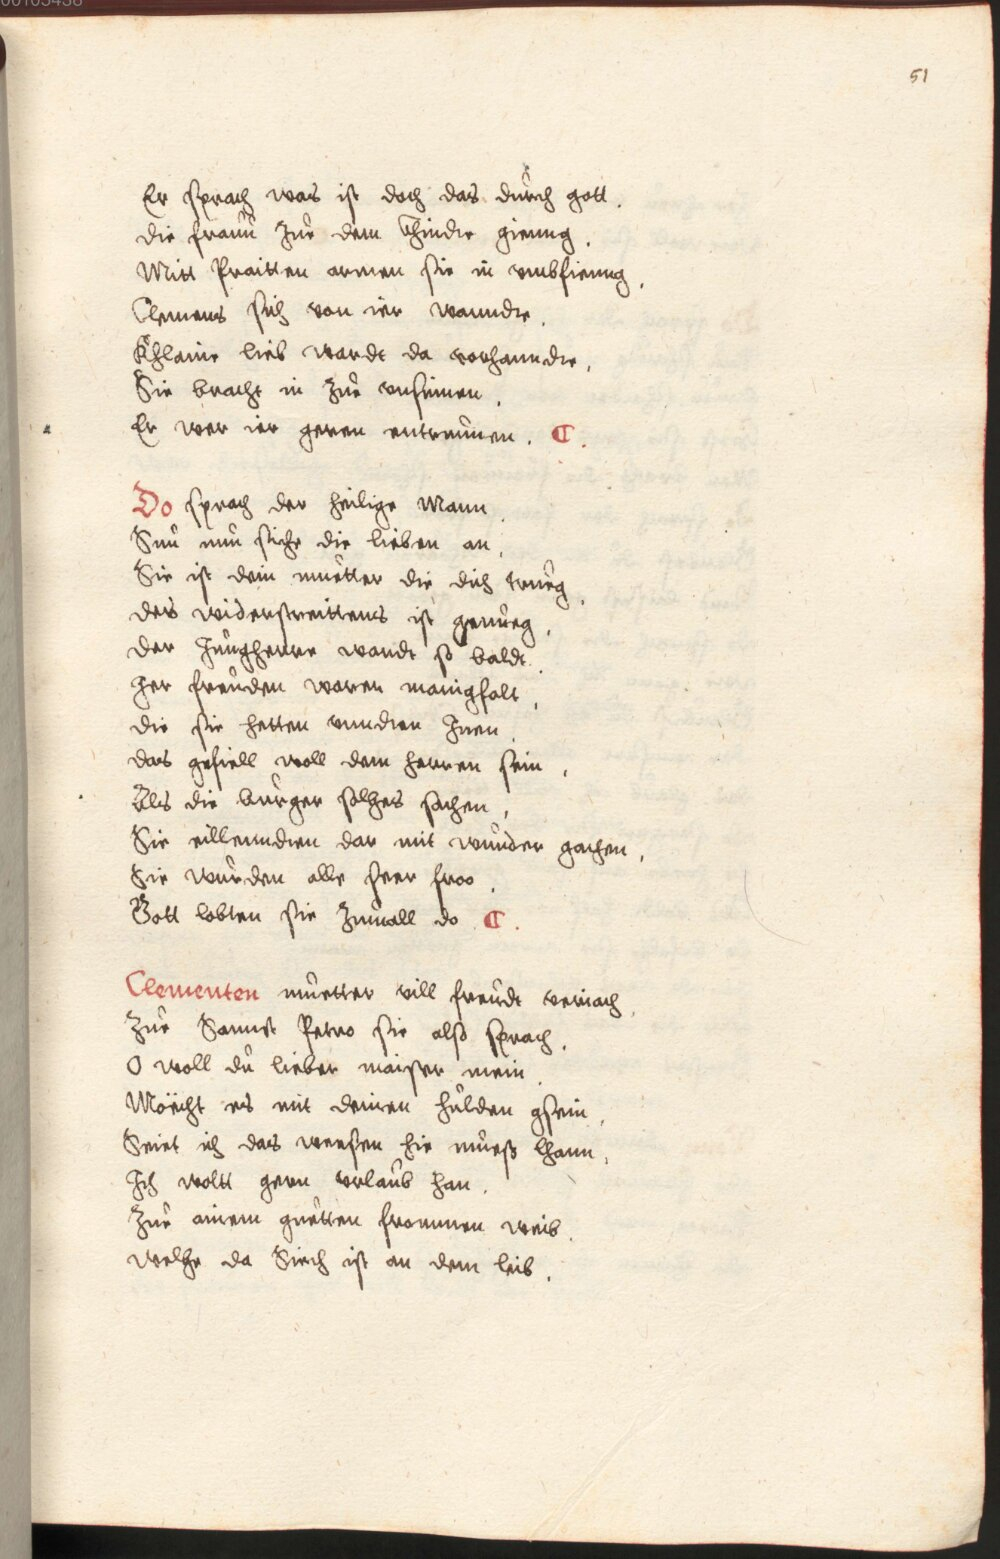 51
Er sprach was ist doch das durch gott.
die frauu zue dem Khinde gienng.
Mitt Praitten armen sie in vmbfienng.
Clemens sich von ier wanndte.
Khlaine lieb wardt da vorhanndte.
Sie bracht in zue vnsinnen.
Er wer ier geren entrunnen. C.
Do sprach der heilige Mann.
Sun nun siche die lieben an.
Sie ist dein muetter die dich trueg.
des widerstreittens ist genueg.
der Jungherre wardt so baldt.
Jer freuden waren manigfalt.
die sie hetten vnndter Inen.
das gefiell woll dem herren sein.
Als die burger solhes sachen.
Sie eillenndten dar mit wunder gachen.
Sie wurden alle seer froo.
Gott lobten sie zumall do C.
Clementen muetter vill freudt veriach.
Zue Sannst Petro sie alß sprach.
O woll du lieber maister mein.
Moecht es mit deinen hulden gsein.
Seint ich das wessen hie mueß lhann.
Ich woltt gern vrlaub han.
Zue ainem guetten frommen weib.
welhe da Siech ist an dem leib.